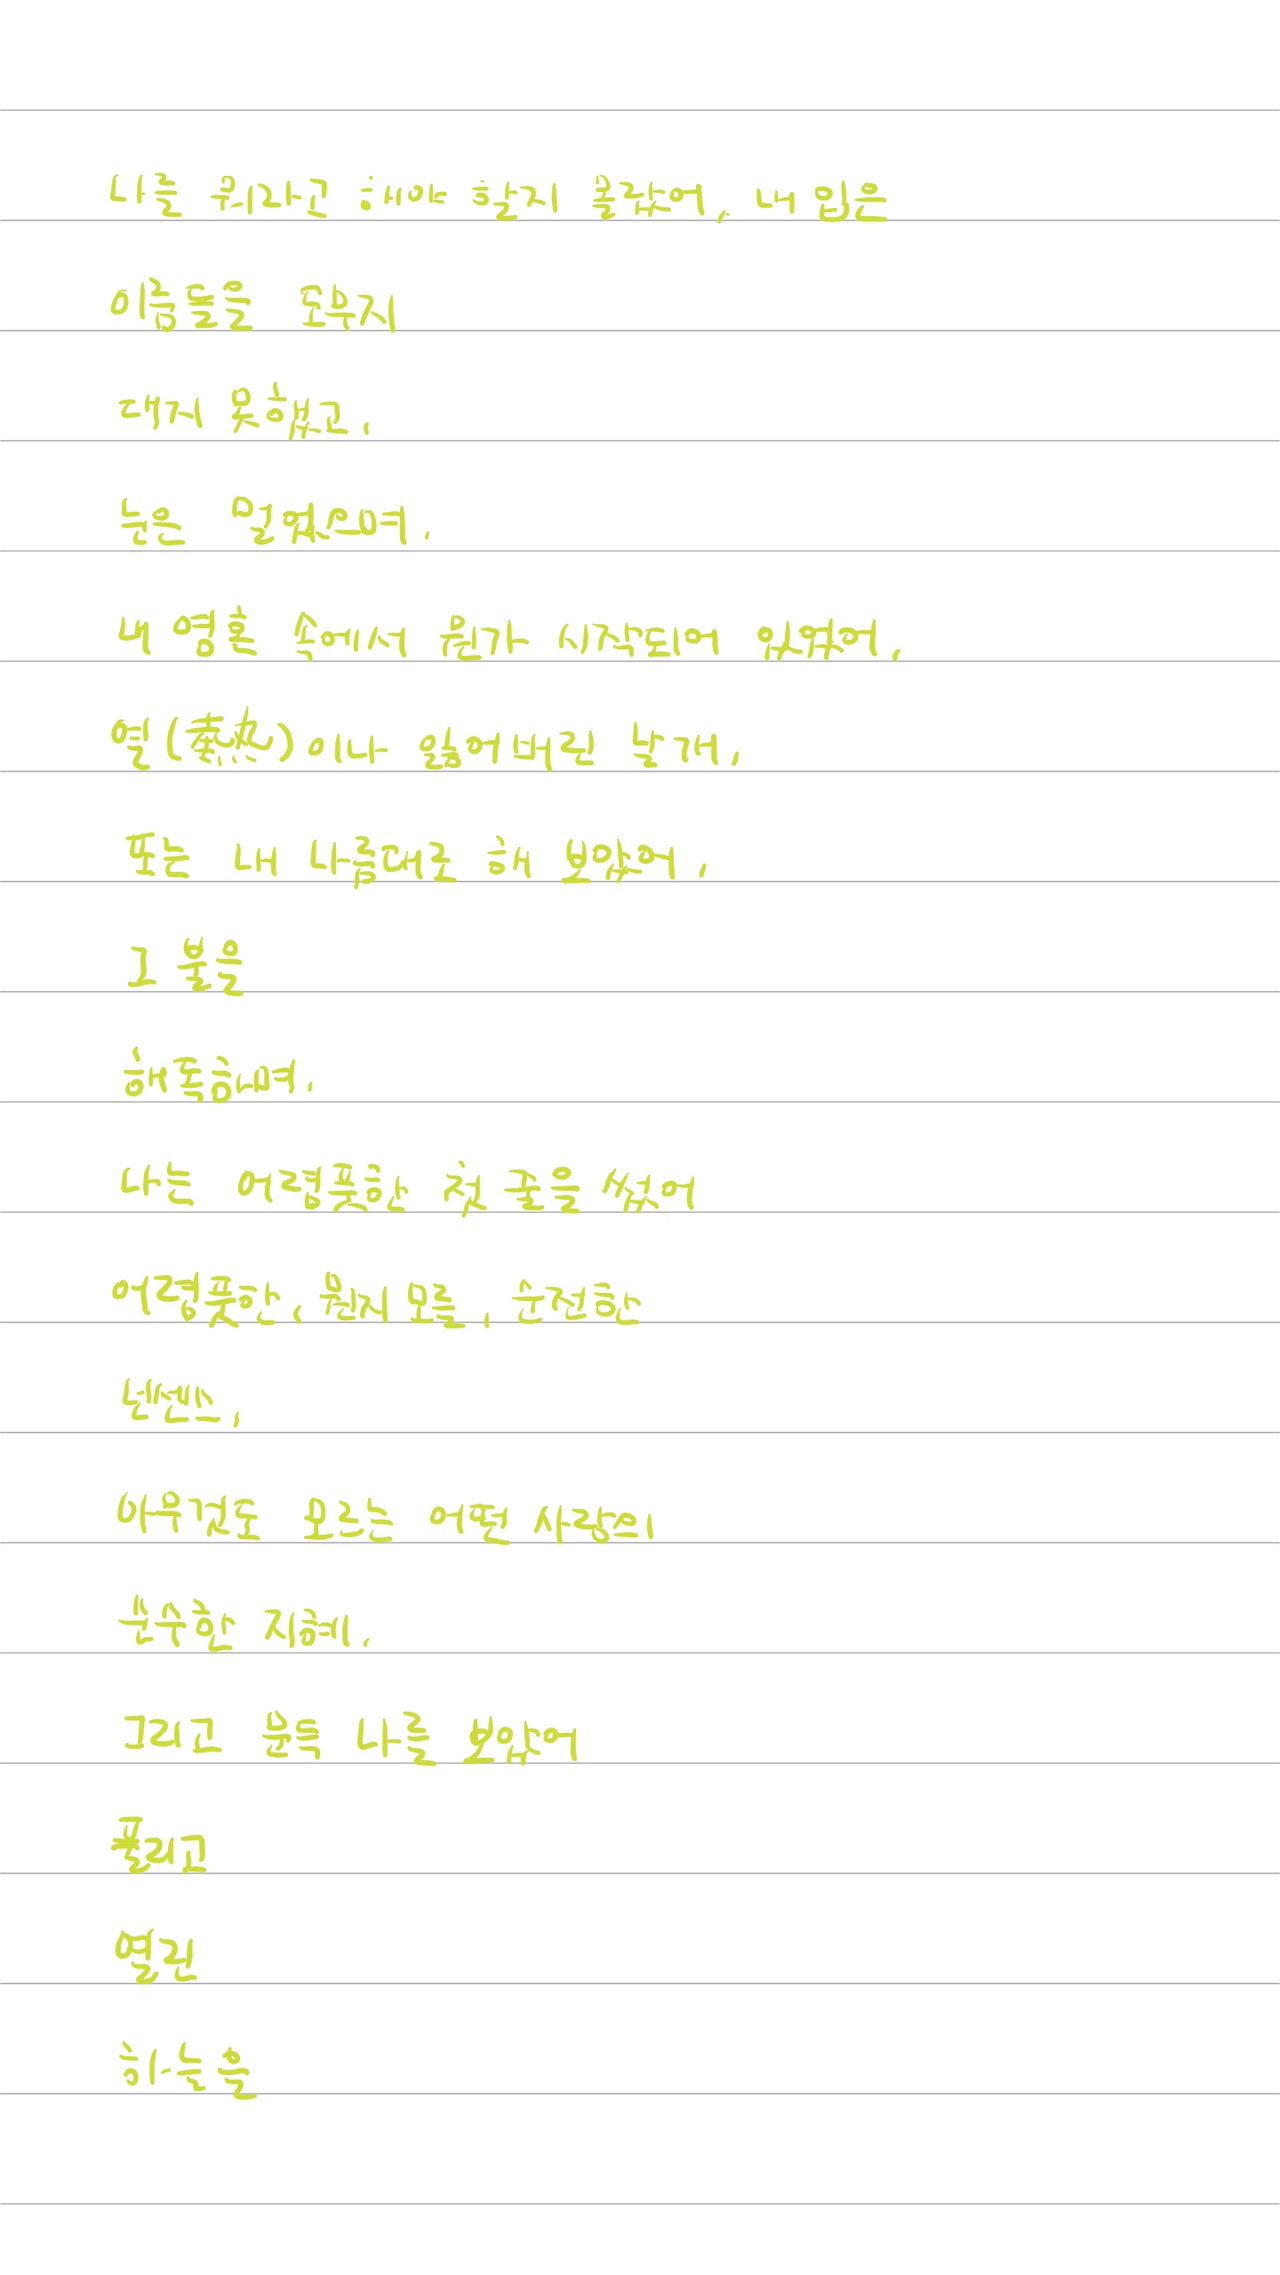 나를 뭐라고 해야 할지 몰랐어, 내 입은
이름들을 도무지
대지 못했고,
눈은 멀었으며,
내 영혼 속에서 뭔가 시작되어 있었어,
열(熱)이나 잃어버린 날개,
또는 내 나름대로 해 보았어,
그 불을
해독하며,
나는 어렴풋한 첫 줄을 썼어
어렴풋한, 뭔지 모를, 순전한
넌센스,
아무것도 모르는 어떤 사람의
순수한 지혜,
그리고 문득 나를 보았어
풀리고
열린
하늘을